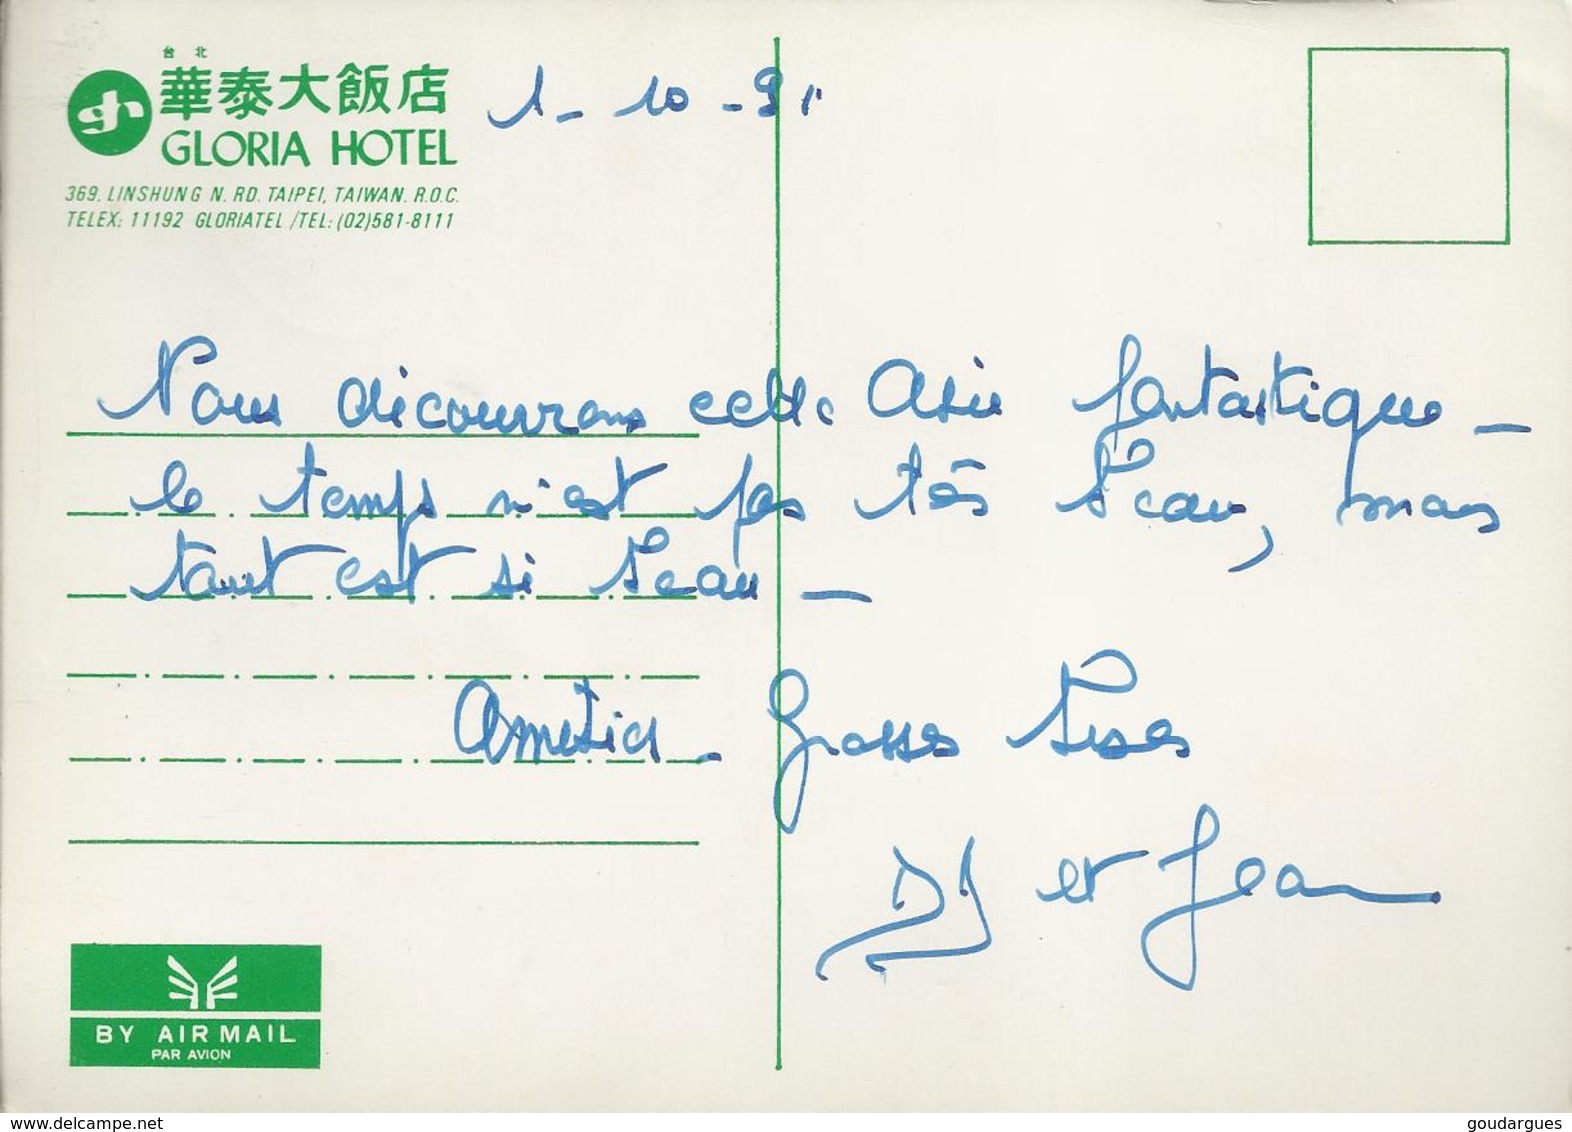 台北
華泰大飯店
GLORIA HOTEL
369. LINSHUNG N. RD. TAIPEI, TAIWAN. R.O.C.
TELEX: 11192 GLORIATEL /TEL: (02)581-8111
1 - 10 - 91
Nous découvrons cette Asie fantastique –
le temps n'est pas très beau, mais
tout est si beau –
Amitiés - Grosses bises
DJ et Jean
BY AIR MAIL
PAR AVION
www.delcampe.net
goudargues